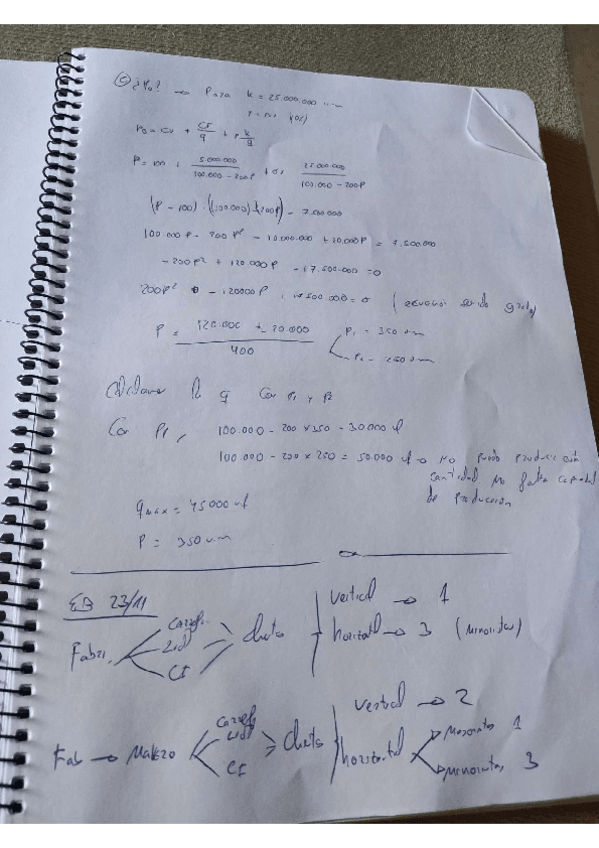 c) ¿Po? → Para k = 25.000.000 um
Po = cv + CF/q + r k/q
P = 100 + 5.000.000/100.000 - 200P + 0,1 25.000.000/100.000 - 200P
(P - 100) · (100.000 - 200P) = 7.500.000
100.000P - 200P² - 10.000.000 + 20.000P = 7.500.000
- 200P² + 120.000P - 17.500.000 = 0
200P² - 120000P + 17.500.000 = 0 (ecuación segundo grado)
P = 120.000 ± 20.000 / 400
P1 = 350 um
P2 = 250 um
Calculamos la q con P1 y P2
Con P1, 100.000 - 200 x 350 = 30.000 uf
100.000 - 200 x 250 = 50.000 uf → No puedo producir esta
cantidad no falta capacidad
de producción
qmax = 45000 uf
P = 350 um
EB 23/11
Fabri.
Carref.
Lidl
CI
clientes
vertical → 1
horizontal → 3 (minoristas)
Fab → Makro
Carref
Lidl
CI
clientes
vertical → 2
horizontal
Mayoristas 1
Minoristas 3